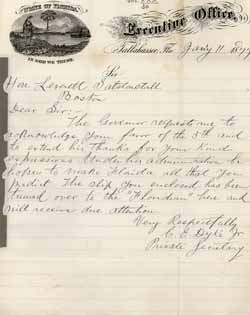 STATE OF FLORIDA.
IN GOD WE TRUST.
Executive Office,
Tallahassee, Fla Jan'y 11 1877
Sir
Hon. Leverett Saltonstall
Boston
Dear Sir:
The Governor requests me to
acknowledge your favor of the 5th and
to extend his thanks for your kind
expressions. Under his administration he
hopes to make Florida all that you
predict. The slip you enclosed has been
turned over to the "Floridian" here and
will receive due attention.
Very Respectfully
C. E. Dyke Jr
Private Secretary